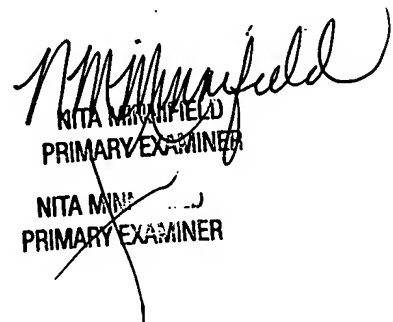 N M Minnifield
NITA MINNIFIELD
PRIMARY EXAMINER
NITA
PRIMARY EXAMINER